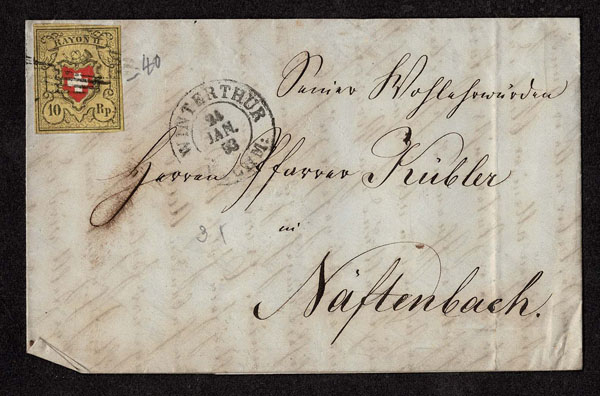 RAYON II
10 Rp
-40
WINTERTHUR
24
JAN.
53
Seiner Wohlehrwürden
Herren Pfarrer Kübler
in
Näftenbach.